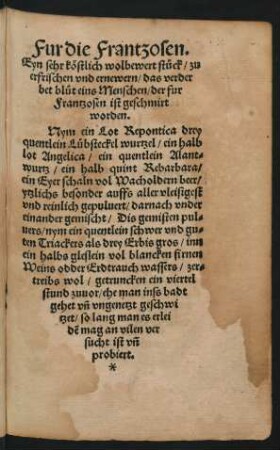 Fur die Frantzosen.
Eyn sehr köstlich wolbewert stück / zu
erfrischen vnd ernewern / das verder
bet blüt eins Menschen / der fur
Frantzosen ist geschmirt
worden.
Nym ein Lot Repontica drey
quentlein Lübsteckel wurtzel / ein halb
lot Angelica / ein quentlein Alant-
wurtz / ein halb quint Rebarbara /
ein Eyer schaln vol Wacholdern beer /
ytzlichs besonder auffs aller vleisigest
vnd reinlich gepuluert / darnach vnder
einander gemischt / Dis gemisten pul-
uers / nym ein quentlein schwer vnd gu-
ten Triackers als drey Erbis gros / inn
ein halbs gleslein vol blancken firnen
Weins odder Erdtrauch wassers / zer-
treibs wol / getruncken ein viertel
stund zuuor / ehe man inß badt
gehet vñ vngenetzt geschwi
tzet / so lang man es erlei
dẽ mag an vilen ver
sucht ist vñ
probiert.
*